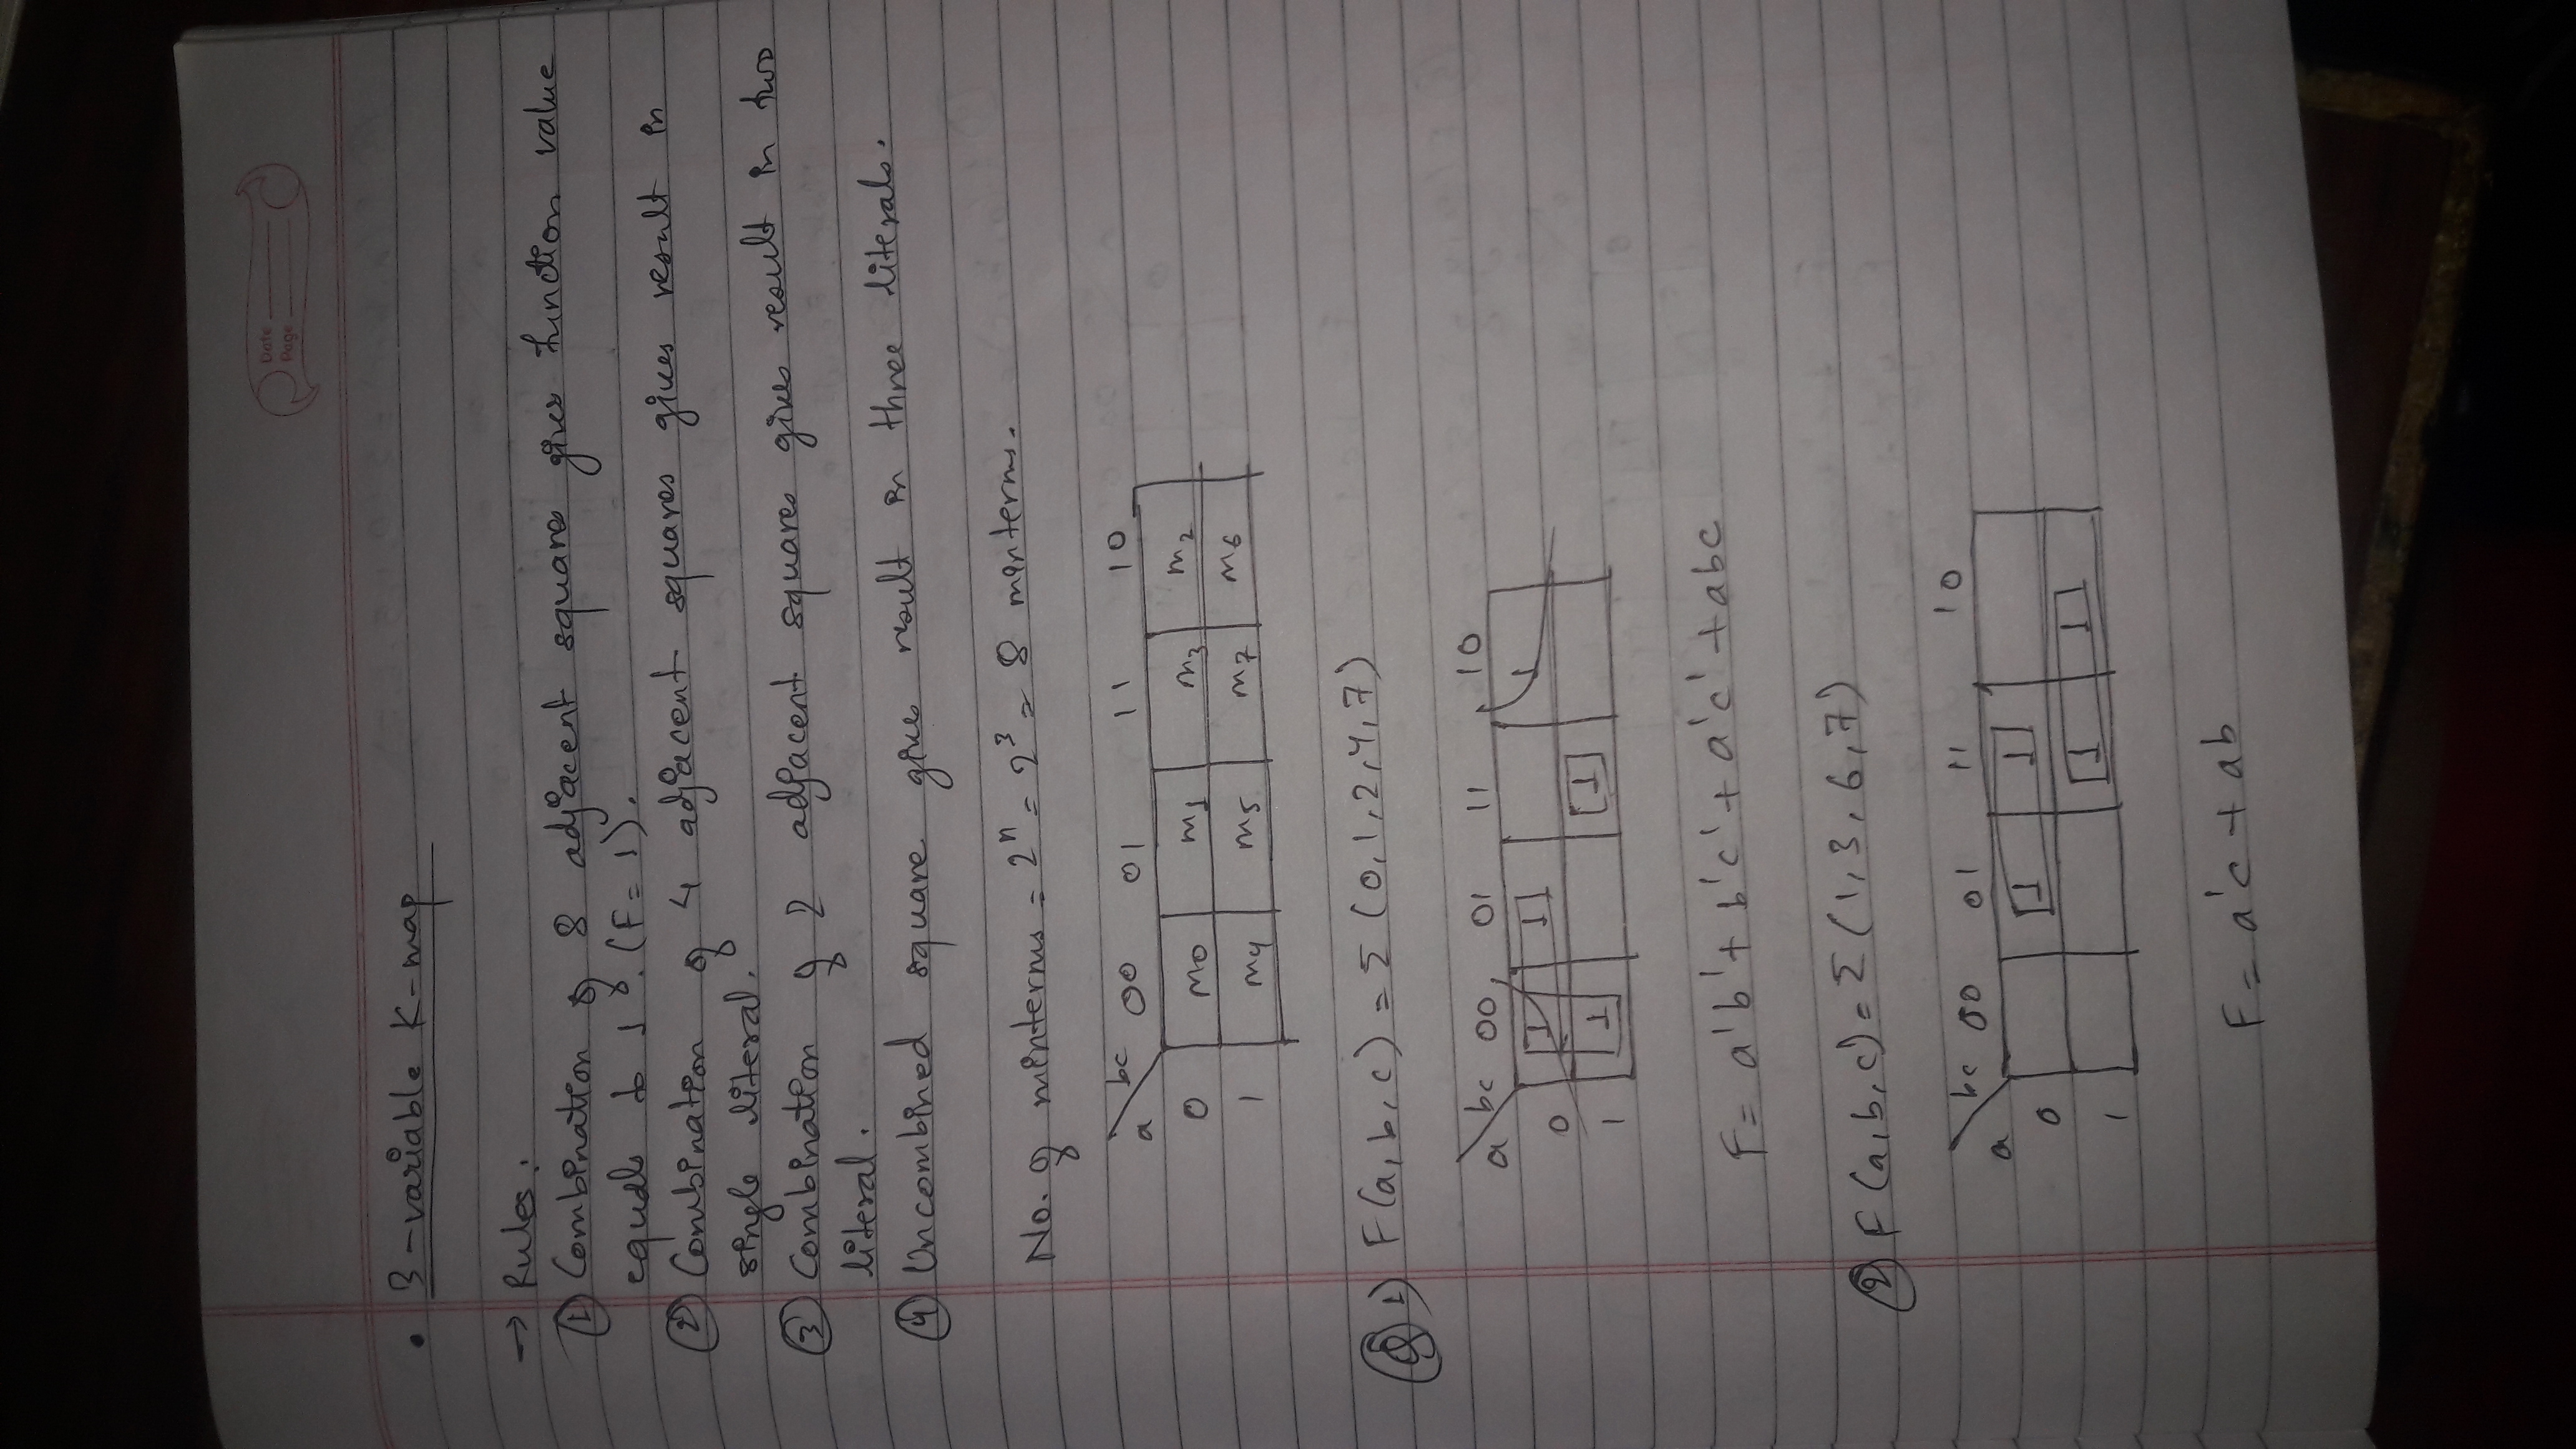 Date
Page
• 3-variable K-map
→ Rules:
① Combination of 8 adjacent square gives function value
equals to 1. (F=1).
② Combination of 4 adjacent squares gives result in
single literal.
③ Combination of 2 adjacent squares gives result in two
literal.
④ Uncombined square give result in three literals.
No. of minterms = 2ⁿ = 2³ = 8 minterms.
a \ bc 00 01 11 10
0 m0 m1 m3 m2
1 m4 m5 m7 m6
Q 1) F(a,b,c) = Σ (0,1,2,4,7)
a \ bc 00 01 11 10
0 1 1 1
1 1 1
F= a'b'+ b'c' + a'c' + abc
② F(a,b,c)= Σ (1,3,6,7)
a \ bc 00 01 11 10
0 1 1
1 1 1
F= a'c + ab